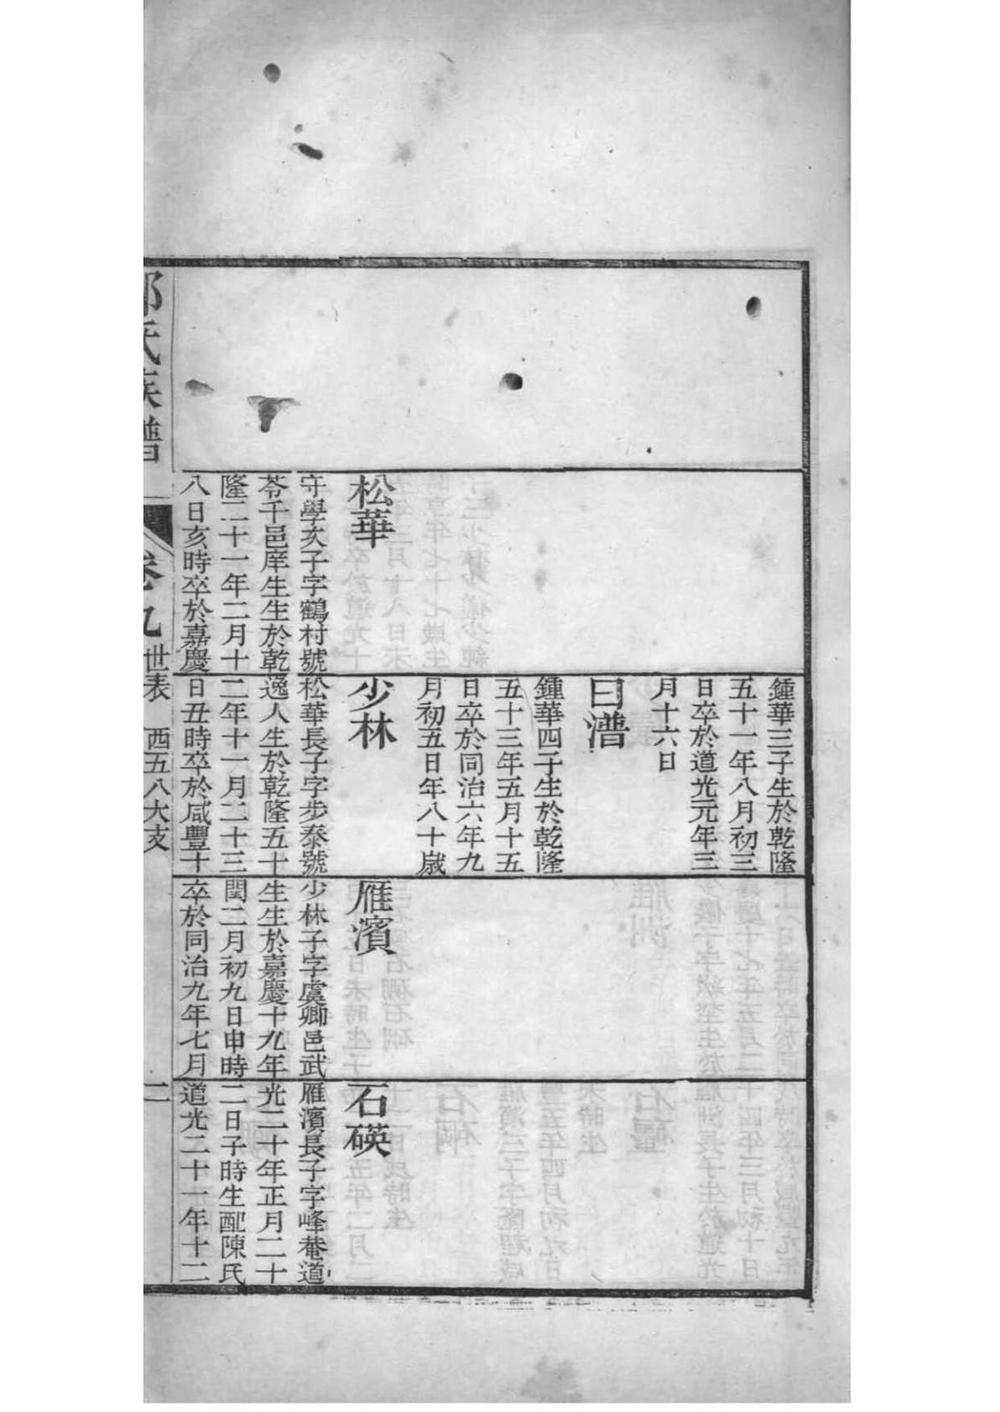 松華
守學亥子字鶴村號
苓千邑庠生生於乾
隆二十一年二月十
八日亥時卒於嘉慶
鍾華三子生於乾隆
五十一年八月初三
日卒於道光元年三
月十六日
曰潽
鍾華四子生於乾隆
五十三年五月十五
日卒於同治六年九
月初五日年八十歲
少林
松華長子字步泰號
逸人生於乾隆五十
二年十一月二十三
日丑時卒於咸豐十
雁濱
少林子字虞卿邑武
生生於嘉慶十九年
閏二月初九日申時
卒於同治九年七月
石碤
雁濱長子字峰菴道
光二十年正月二十
二日子時生配陳氏
道光二十一年十二
氏族譜
卷九
世表 西五八大支
二